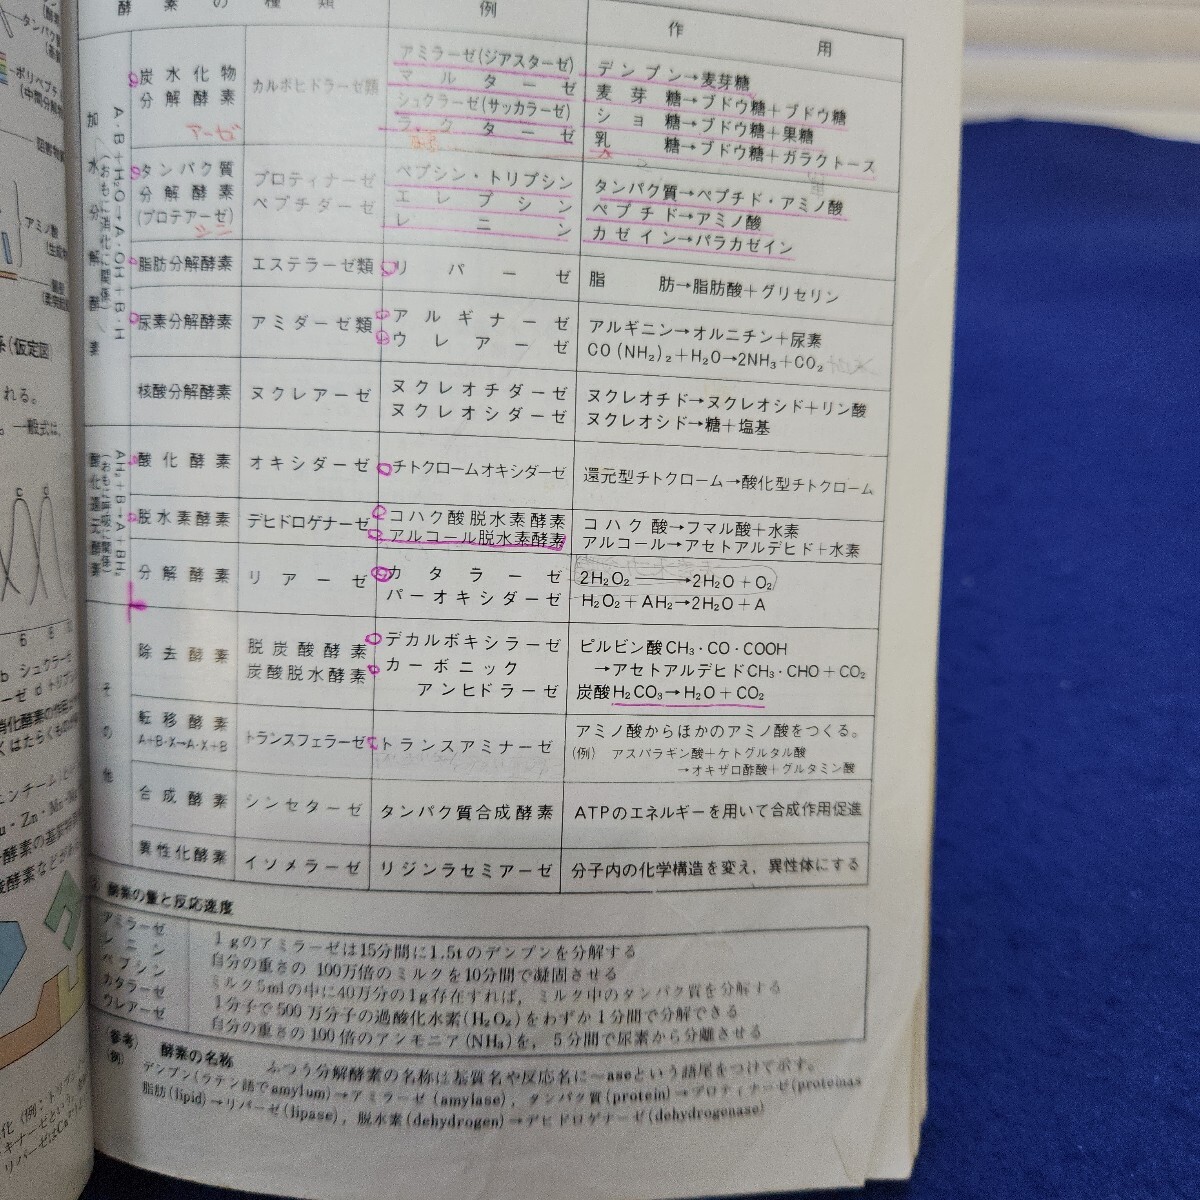 酵素の種類 例 作用
加水分解酵素
A・B＋H₂O→A・OH＋B・H
(おもに消化に関係)
炭水化物
分解酵素
アーゼ
カルボヒドラーゼ類
アミラーゼ(ジアスターゼ)
マルターゼ
シュクラーゼ(サッカラーゼ)
ラクターゼ
デンプン→麦芽糖
麦芽糖→ブドウ糖＋ブドウ糖
ショ糖→ブドウ糖＋果糖
乳糖→ブドウ糖＋ガラクトース
タンパク質
分解酵素
(プロテアーゼ)
シン
プロティナーゼ
ペプチダーゼ
ペプシン・トリプシン
エレプシン
レニン
タンパク質→ペプチド・アミノ酸
ペプチド→アミノ酸
カゼイン→パラカゼイン
脂肪分解酵素
エステラーゼ類
リパーゼ
脂肪→脂肪酸＋グリセリン
尿素分解酵素
アミダーゼ類
アルギナーゼ
ウレアーゼ
アルギニン→オルニチン＋尿素
CO(NH₂)₂＋H₂O→2NH₃＋CO₂
核酸分解酵素
ヌクレアーゼ
ヌクレオチダーゼ
ヌクレオシダーゼ
ヌクレオチド→ヌクレオシド＋リン酸
ヌクレオシド→糖＋塩基
酸化還元酵素
AH₂＋B→A＋BH₂
(おもに呼吸に関係)
酸化酵素
オキシダーゼ
チトクロームオキシダーゼ
還元型チトクローム→酸化型チトクローム
脱水素酵素
デヒドロゲナーゼ
コハク酸脱水素酵素
アルコール脱水素酵素
コハク酸→フマル酸＋水素
アルコール→アセトアルデヒド＋水素
分解酵素
リアーゼ
カタラーゼ
パーオキシダーゼ
2H₂O₂→2H₂O＋O₂
H₂O₂＋AH₂→2H₂O＋A
その他
除去酵素
脱炭酸酵素
炭酸脱水酵素
デカルボキシラーゼ
カーボニック
アンヒドラーゼ
ピルビン酸CH₃・CO・COOH
→アセトアルデヒドCH₃・CHO＋CO₂
炭酸H₂CO₃→H₂O＋CO₂
転移酵素
A＋B・X→A・X＋B
トランスフェラーゼ
トランスアミナーゼ
アミノ酸からほかのアミノ酸をつくる。
(例) アスパラギン酸＋ケトグルタル酸
→オキザロ酢酸＋グルタミン酸
合成酵素
シンセターゼ
タンパク質合成酵素
ATPのエネルギーを用いて合成作用促進
異性化酵素
イソメラーゼ
リジンラセミアーゼ
分子内の化学構造を変え，異性体にする
酵素の量と反応速度
アミラーゼ 1gのアミラーゼは15分間に1.5tのデンプンを分解する
レニン 自分の重さの100万倍のミルクを10分間で凝固させる
ペプシン ミルク5mlの中に40万分の1g存在すれば，ミルク中のタンパク質を分解する
カタラーゼ 1分子で500万分子の過酸化水素(H₂O₂)をわずか1分間で分解できる
ウレアーゼ 自分の重さの100倍のアンモニア(NH₃)を，5分間で尿素から分離させる
(参考) 酵素の名称 ふつう分解酵素の名称は基質名や反応名に－aseという語尾をつけて示す。
(例) デンプン(ラテン語でamylum)→アミラーゼ(amylase)，タンパク質(protein)→プロティナーゼ(proteinas
脂肪(lipid)→リパーゼ(lipase)，脱水素(dehydrogen)→デヒドロゲナーゼ(dehydrogenase)
タンパク質
ポリペプチ
(中間分解
アミノ酸
(仮定図)
れる。
一般式は，
c c
6 8
b シュクラーゼ